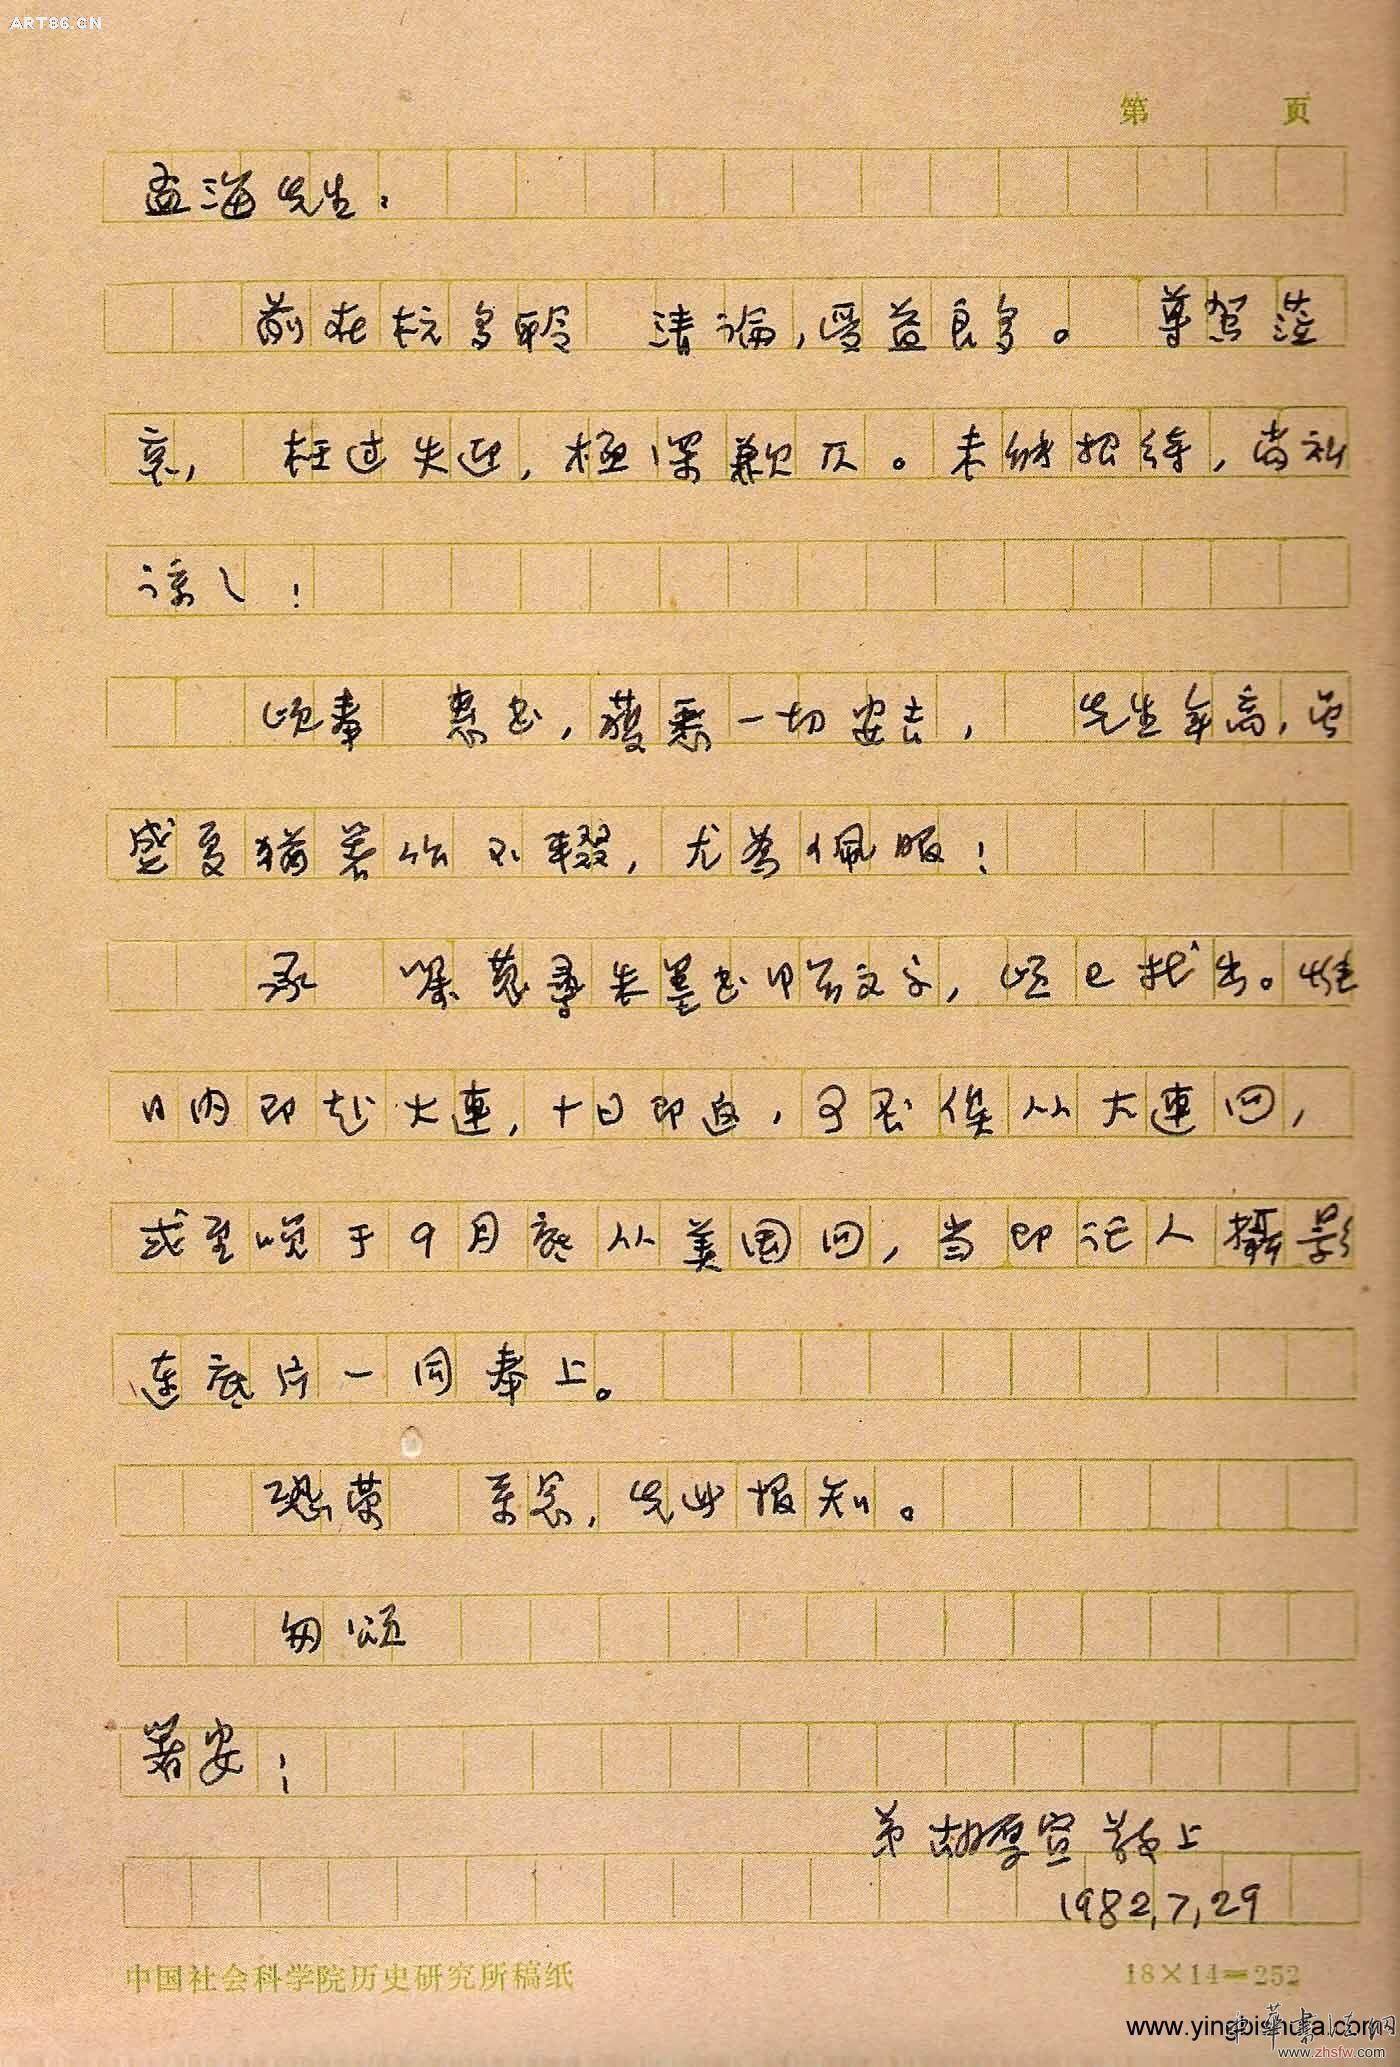 ART86.CN
第 页
孟海先生：
前在杭多聆 清论，受益良多。 尊驾莅
京， 枉过失迎，极深歉仄。未能招待，尚祈
谅之！
顷奉 惠书，藉悉一切安吉， 先生年高，当
盛夏犹著作不辍，尤为佩服！
承 嘱觅寻朱墨书甲骨文字，顷已找出。惟
日内即赴大连，十日即返，可否俟从大連回，
或至晚于9月底从美国回，当即记人攝影
连底片一同奉上。
恐荣 系念，先此报知。
匆颂
著安！
弟胡厚宣敬上
1982,7,29
中国社会科学院历史研究所稿纸
18×14=252
www.yingbishufa.com
中華書法网
www.zhsfw.com